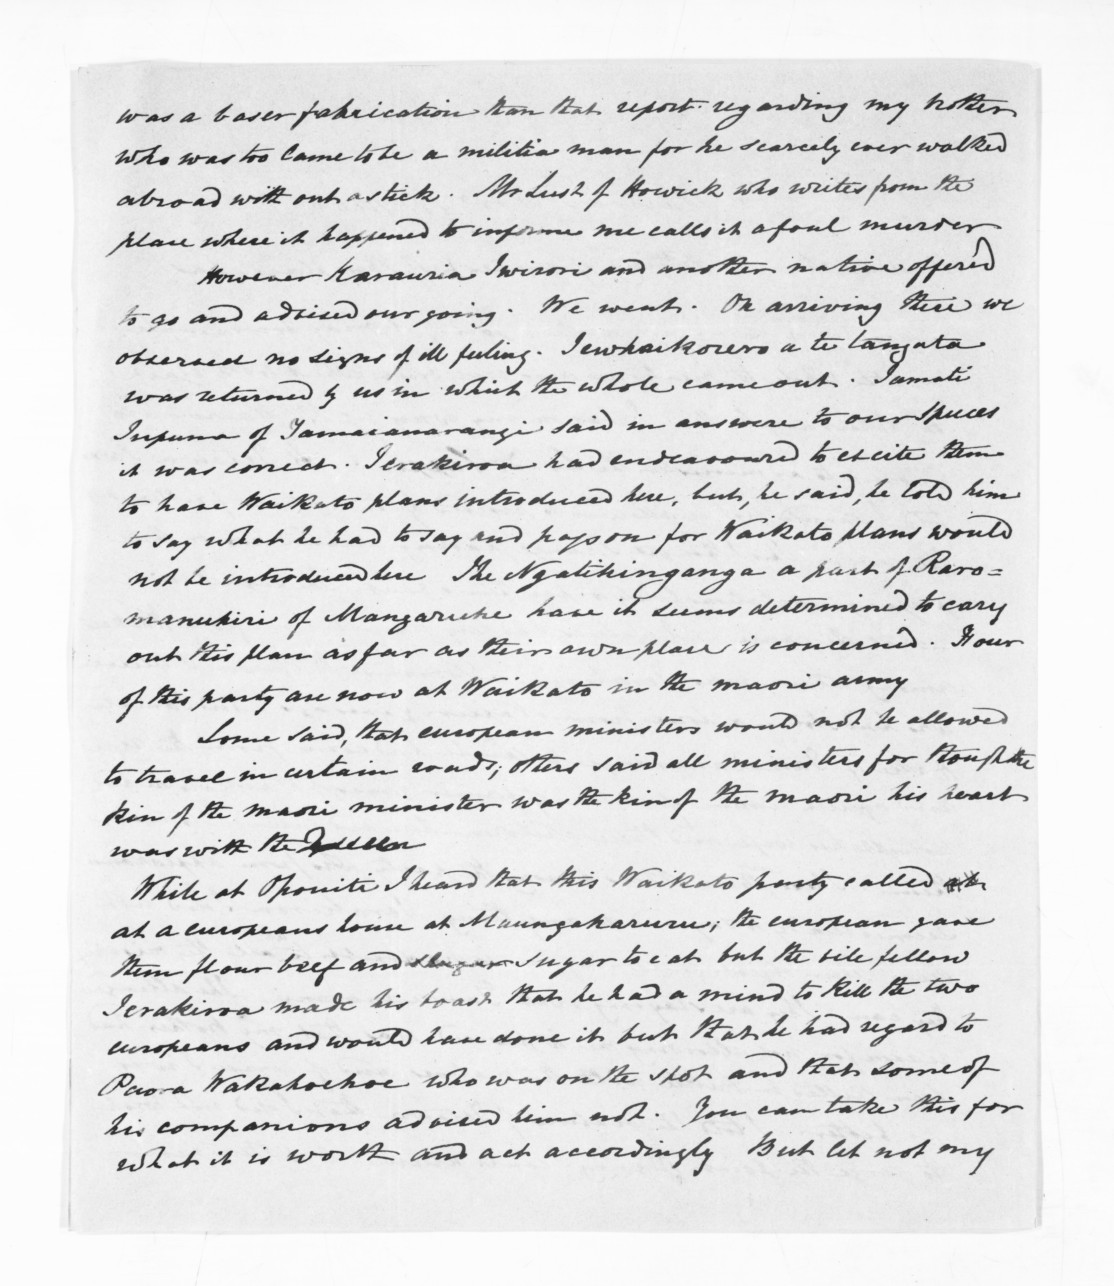 was a baser fabrication than that report regarding my brother
who was too lame to be a militia man for he scarcely ever walked
abroad with out a stick. Mr Lush of Howick who writes from the
place where it happened to informe me calls it a foul murder
However Karauria Iwirori and another native offer'd
to go and advised our going. We went. On arriving there we
observed no signs of ill feeling. Tewhaikorero a te tangata
was returned by us in which the whole came out. Tamati
Tupuna of Tamaianarangi said in answere to our Speces
it was correct. Terakiroa had endeavoured to excite them
to have Waikato plans introduced here, but, he said, he told him
to say what he had to say and pass on for Waikato plans would
not be introduced here The Ngatihinganga a part of Raro=
manukiri of Mangaruhe have it seems determined to cary
out this plan as far as their own place is concerned. Four
of this party are now at Waikato in the maori army
Some said, that european ministers would not be allowed
to travel in certain roads; others said all ministers for though the
kin of the maori minister was the kin of the maori his heart
was with the Queen
While at Opouiti I heard that this Waikato party called
at a europeans house at Maungaharuru; the european gave
them flour beef and sugar to eat but the vile fellow
Terakiroa made his boast that he had a mind to kill the two
europeans and would have done it but that he had regard to
Paora Wakahoehoe who was on the spot and that some of
his companions advised him not. You can take this for
what it is worth and act accordingly But let not my